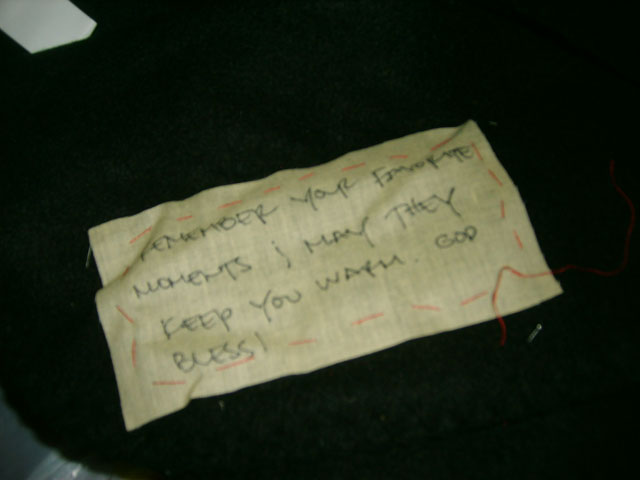 REMEMBER YOUR FAVORITE
MOMENTS ; MAY THEY
KEEP YOU WARM. GOD
BLESS!